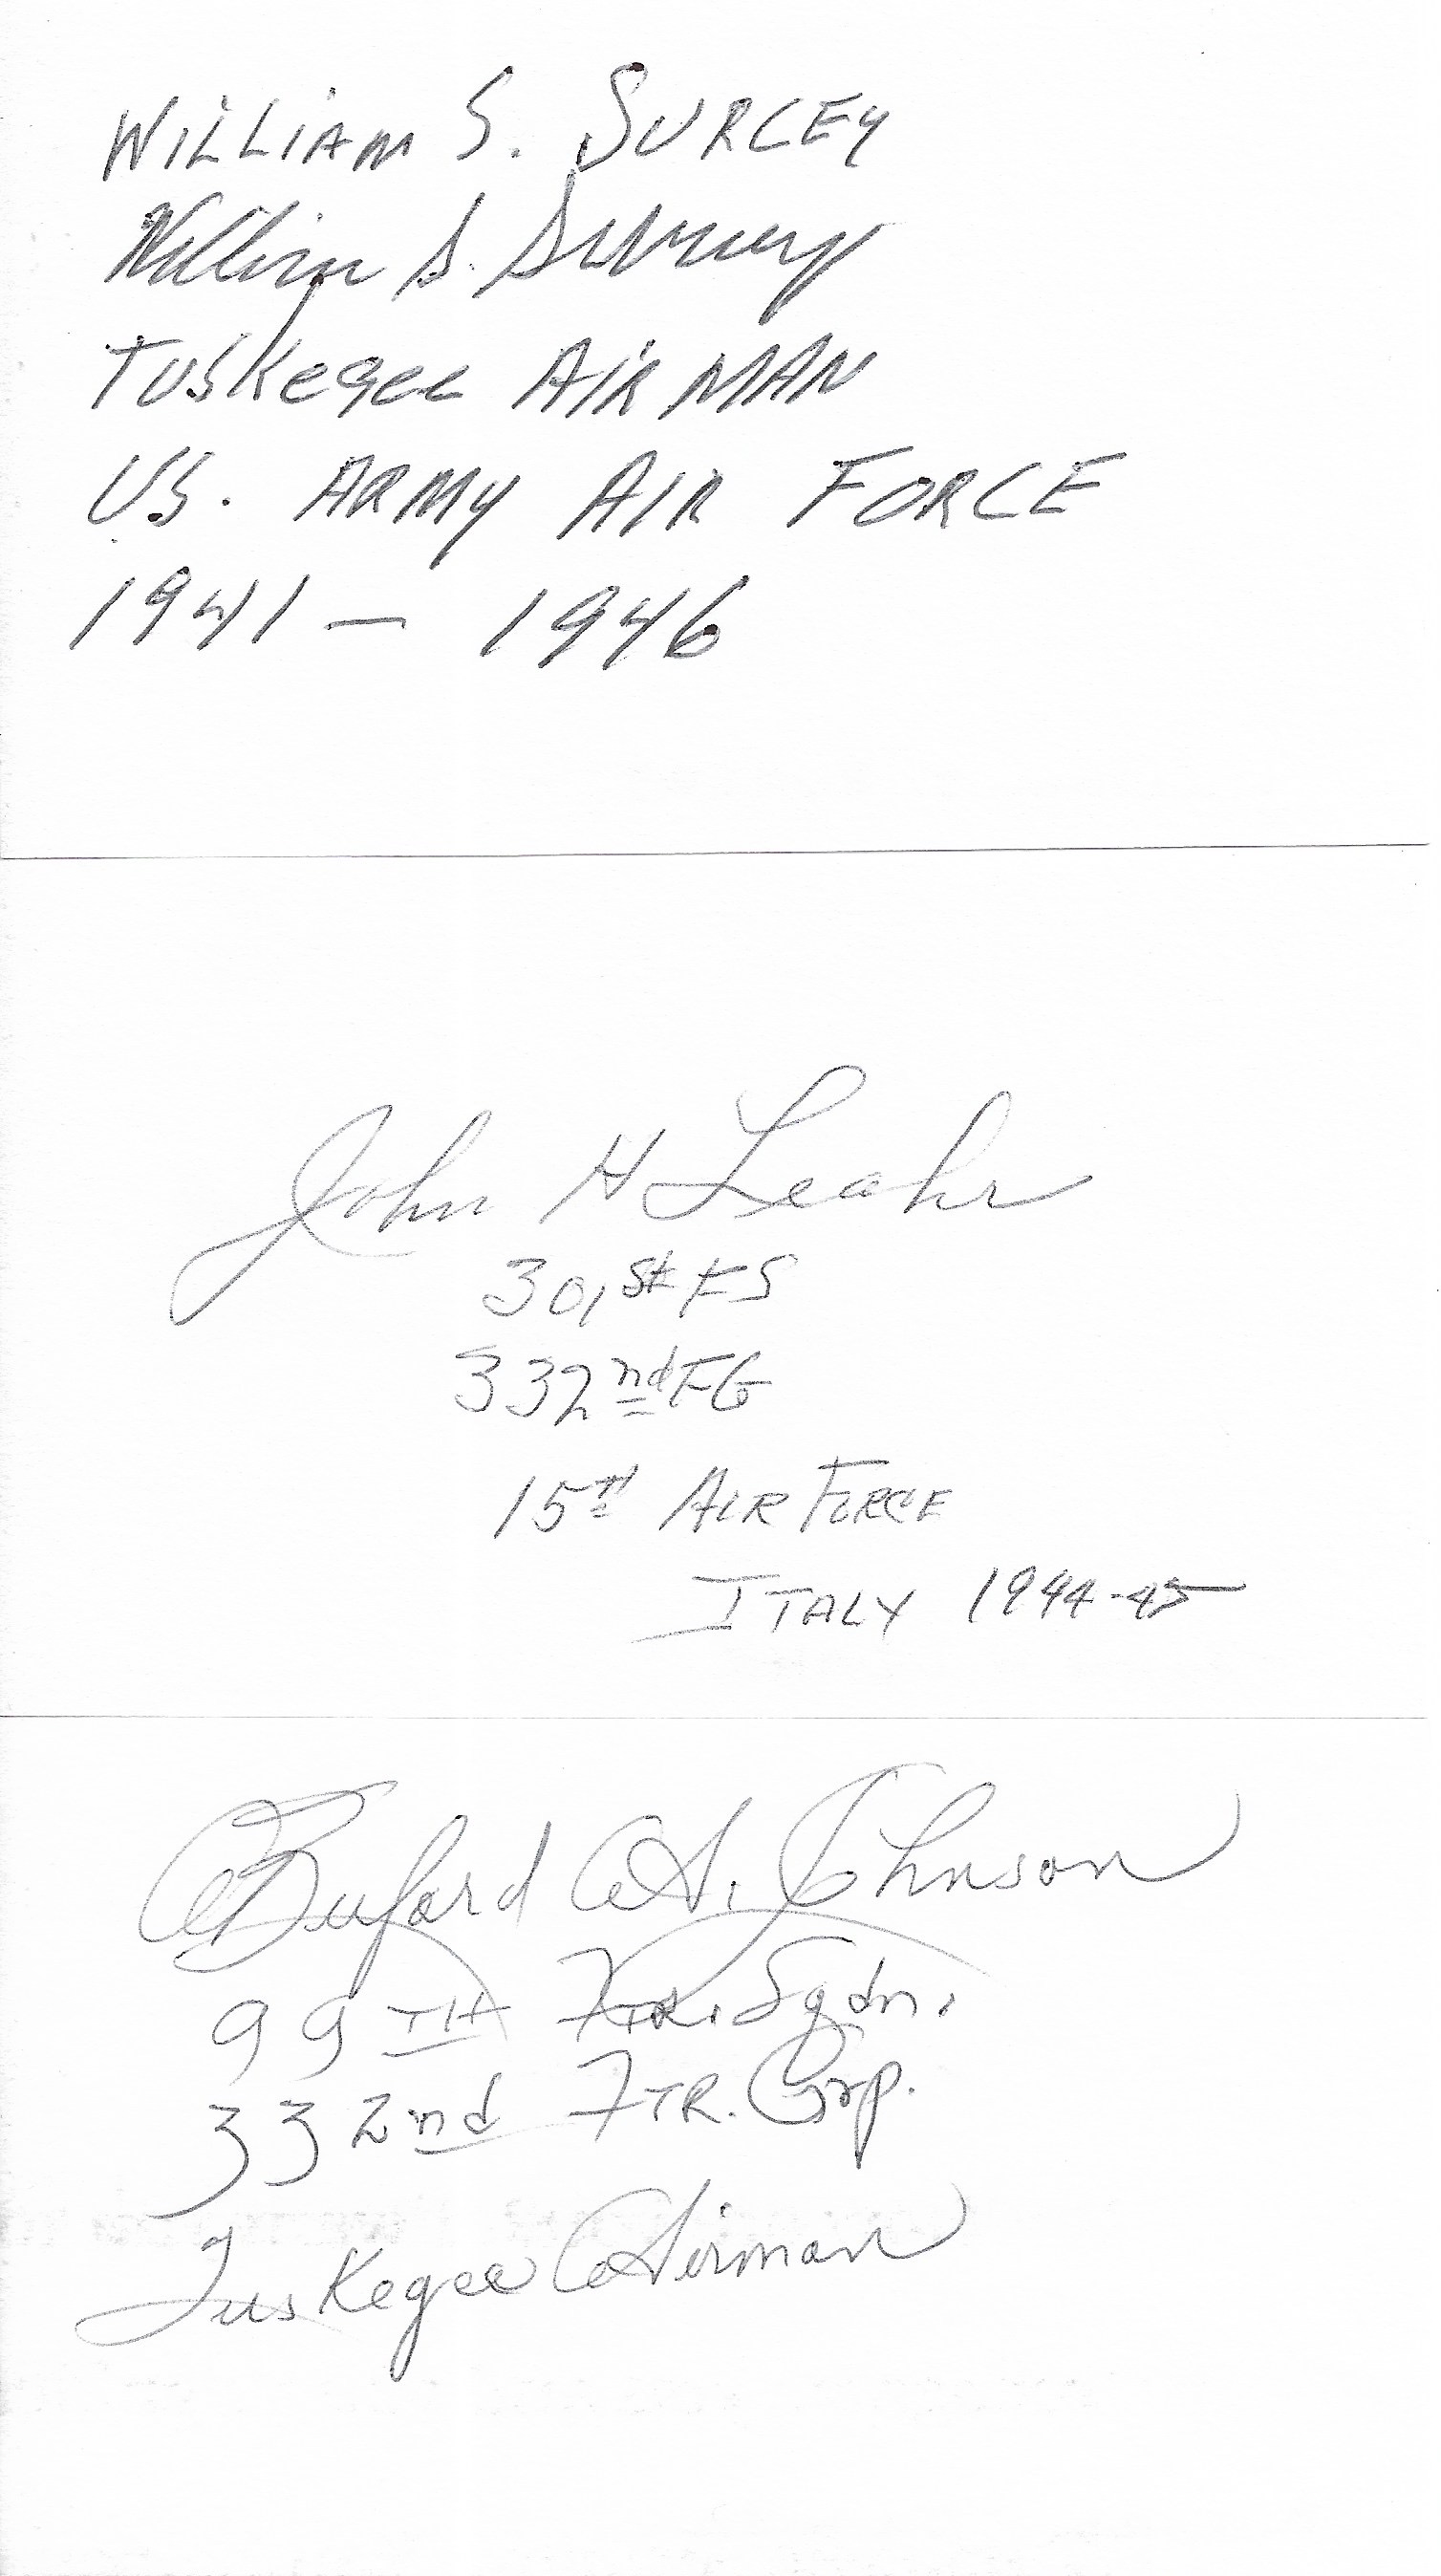 WILLIAM S. SURCEY
William S. Surcey
TUSKegee AIRMAN
US. ARMY AIR FORCE
1941 - 1946
John H Leahr
301st FS
332nd FG
15TH AIR FORCE
ITALY 1944-45
Buford A. Johnson
99TH FTR. Sqdn.
332nd FTR. Grp.
Tuskegee Airman